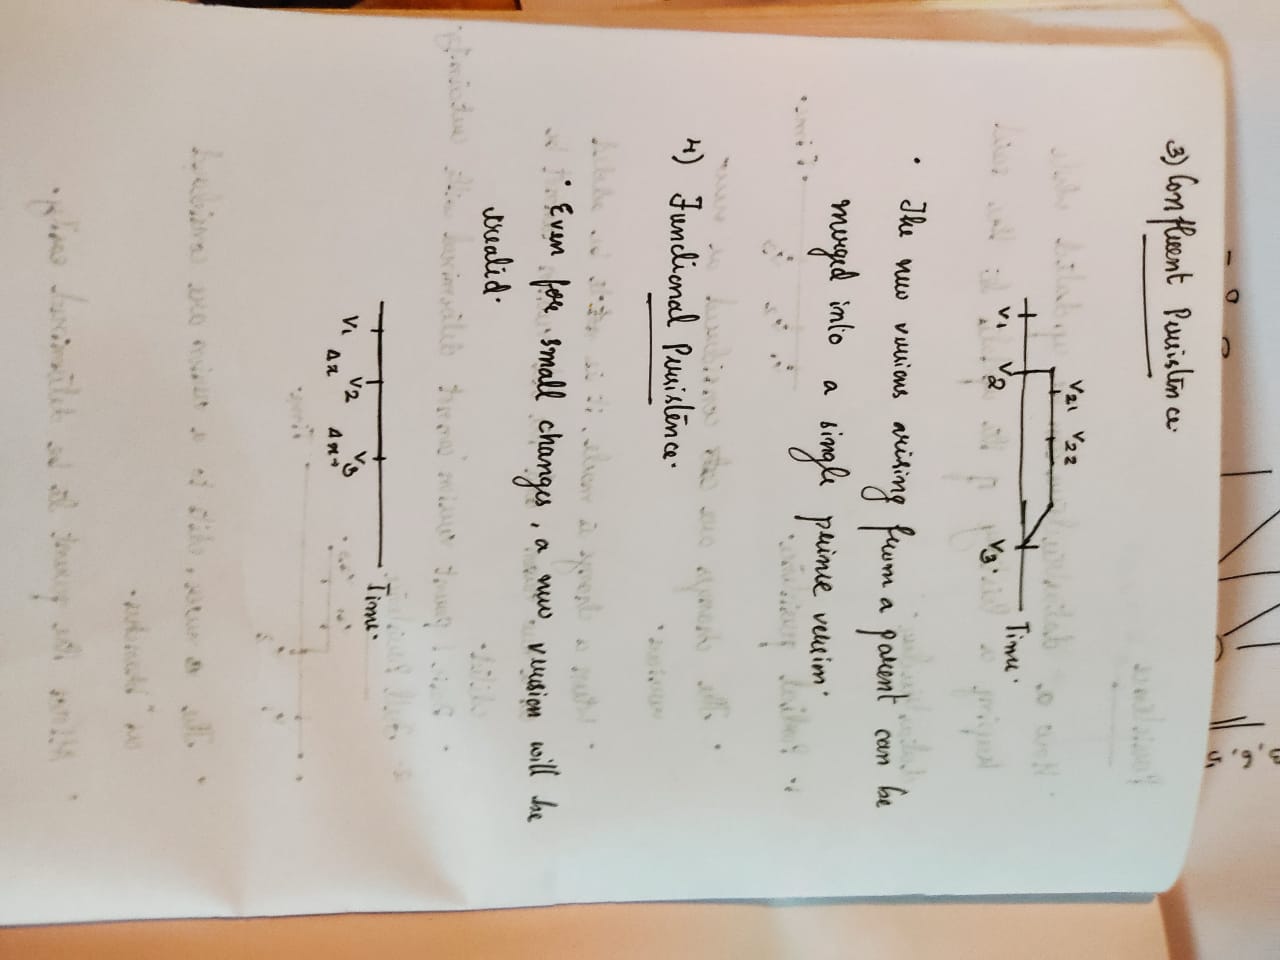 3, 6, 5,
3) Confluent Persistence.
V21 V22
Time.
V1 V2 V3.
• The new versions arising from a parent can be
merged into a single prime version.
4) Functional Persistence.
• Even for small changes, a new version will be
created.
Time.
V1 V2 V3
Δx